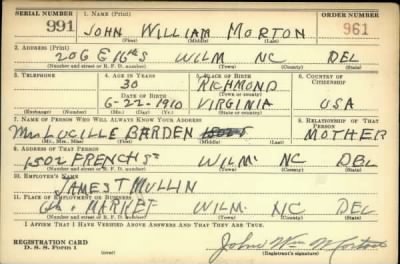 SERIAL NUMBER 1. NAME (Print) ORDER NUMBER
991 JOHN WILLIAM MORTON 961
(First) (Middle) (Last)
2. ADDRESS (Print)
206 E 16th S WILM NC DEL
(Number and street or R. F. D. number) (Town) (County) (State)
3. TELEPHONE 4. AGE IN YEARS 5. PLACE OF BIRTH 6. COUNTRY OF CITIZENSHIP
30 RICHMOND
DATE OF BIRTH (Town or county)
6-22-1910 VIRGINIA USA
(Exchange) (Number) (Mo.) (Day) (Yr.) (State or country)
7. NAME OF PERSON WHO WILL ALWAYS KNOW YOUR ADDRESS 8. RELATIONSHIP OF THAT PERSON
Mrs LUCILLE BARDEN MOTHER
(Mr., Mrs., Miss) (First) (Middle) (Last)
9. ADDRESS OF THAT PERSON
1502 FRENCH St WILM. NC DEL
(Number and street or R. F. D. number) (Town) (County) (State)
10. EMPLOYER'S NAME
JAMES T MULLIN
11. PLACE OF EMPLOYMENT OR BUSINESS
6th MARKET WILM. NC DEL
(Number and street or R. F. D. number) (Town) (County) (State)
I AFFIRM THAT I HAVE VERIFIED ABOVE ANSWERS AND THAT THEY ARE TRUE.
REGISTRATION CARD
D. S. S. Form 1 John Wm Morton